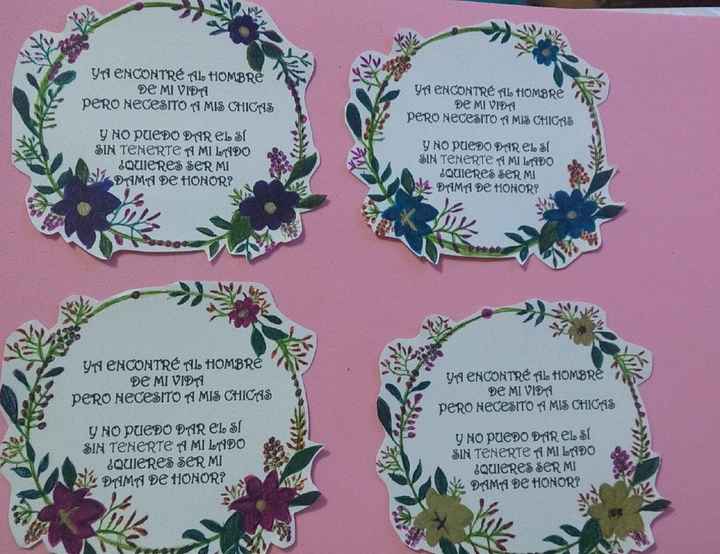 YA ENCONTRÉ AL HOMBRE
DE MI VIDA
PERO NECESITO A MIS CHICAS
Y NO PUEDO DAR EL SÍ
SIN TENERTE A MI LADO
¿QUIERES SER MI
DAMA DE HONOR?
YA ENCONTRÉ AL HOMBRE
DE MI VIDA
PERO NECESITO A MIS CHICAS
Y NO PUEDO DAR EL SÍ
SIN TENERTE A MI LADO
¿QUIERES SER MI
DAMA DE HONOR?
YA ENCONTRÉ AL HOMBRE
DE MI VIDA
PERO NECESITO A MIS CHICAS
Y NO PUEDO DAR EL SÍ
SIN TENERTE A MI LADO
¿QUIERES SER MI
DAMA DE HONOR?
YA ENCONTRÉ AL HOMBRE
DE MI VIDA
PERO NECESITO A MIS CHICAS
Y NO PUEDO DAR EL SÍ
SIN TENERTE A MI LADO
¿QUIERES SER MI
DAMA DE HONOR?